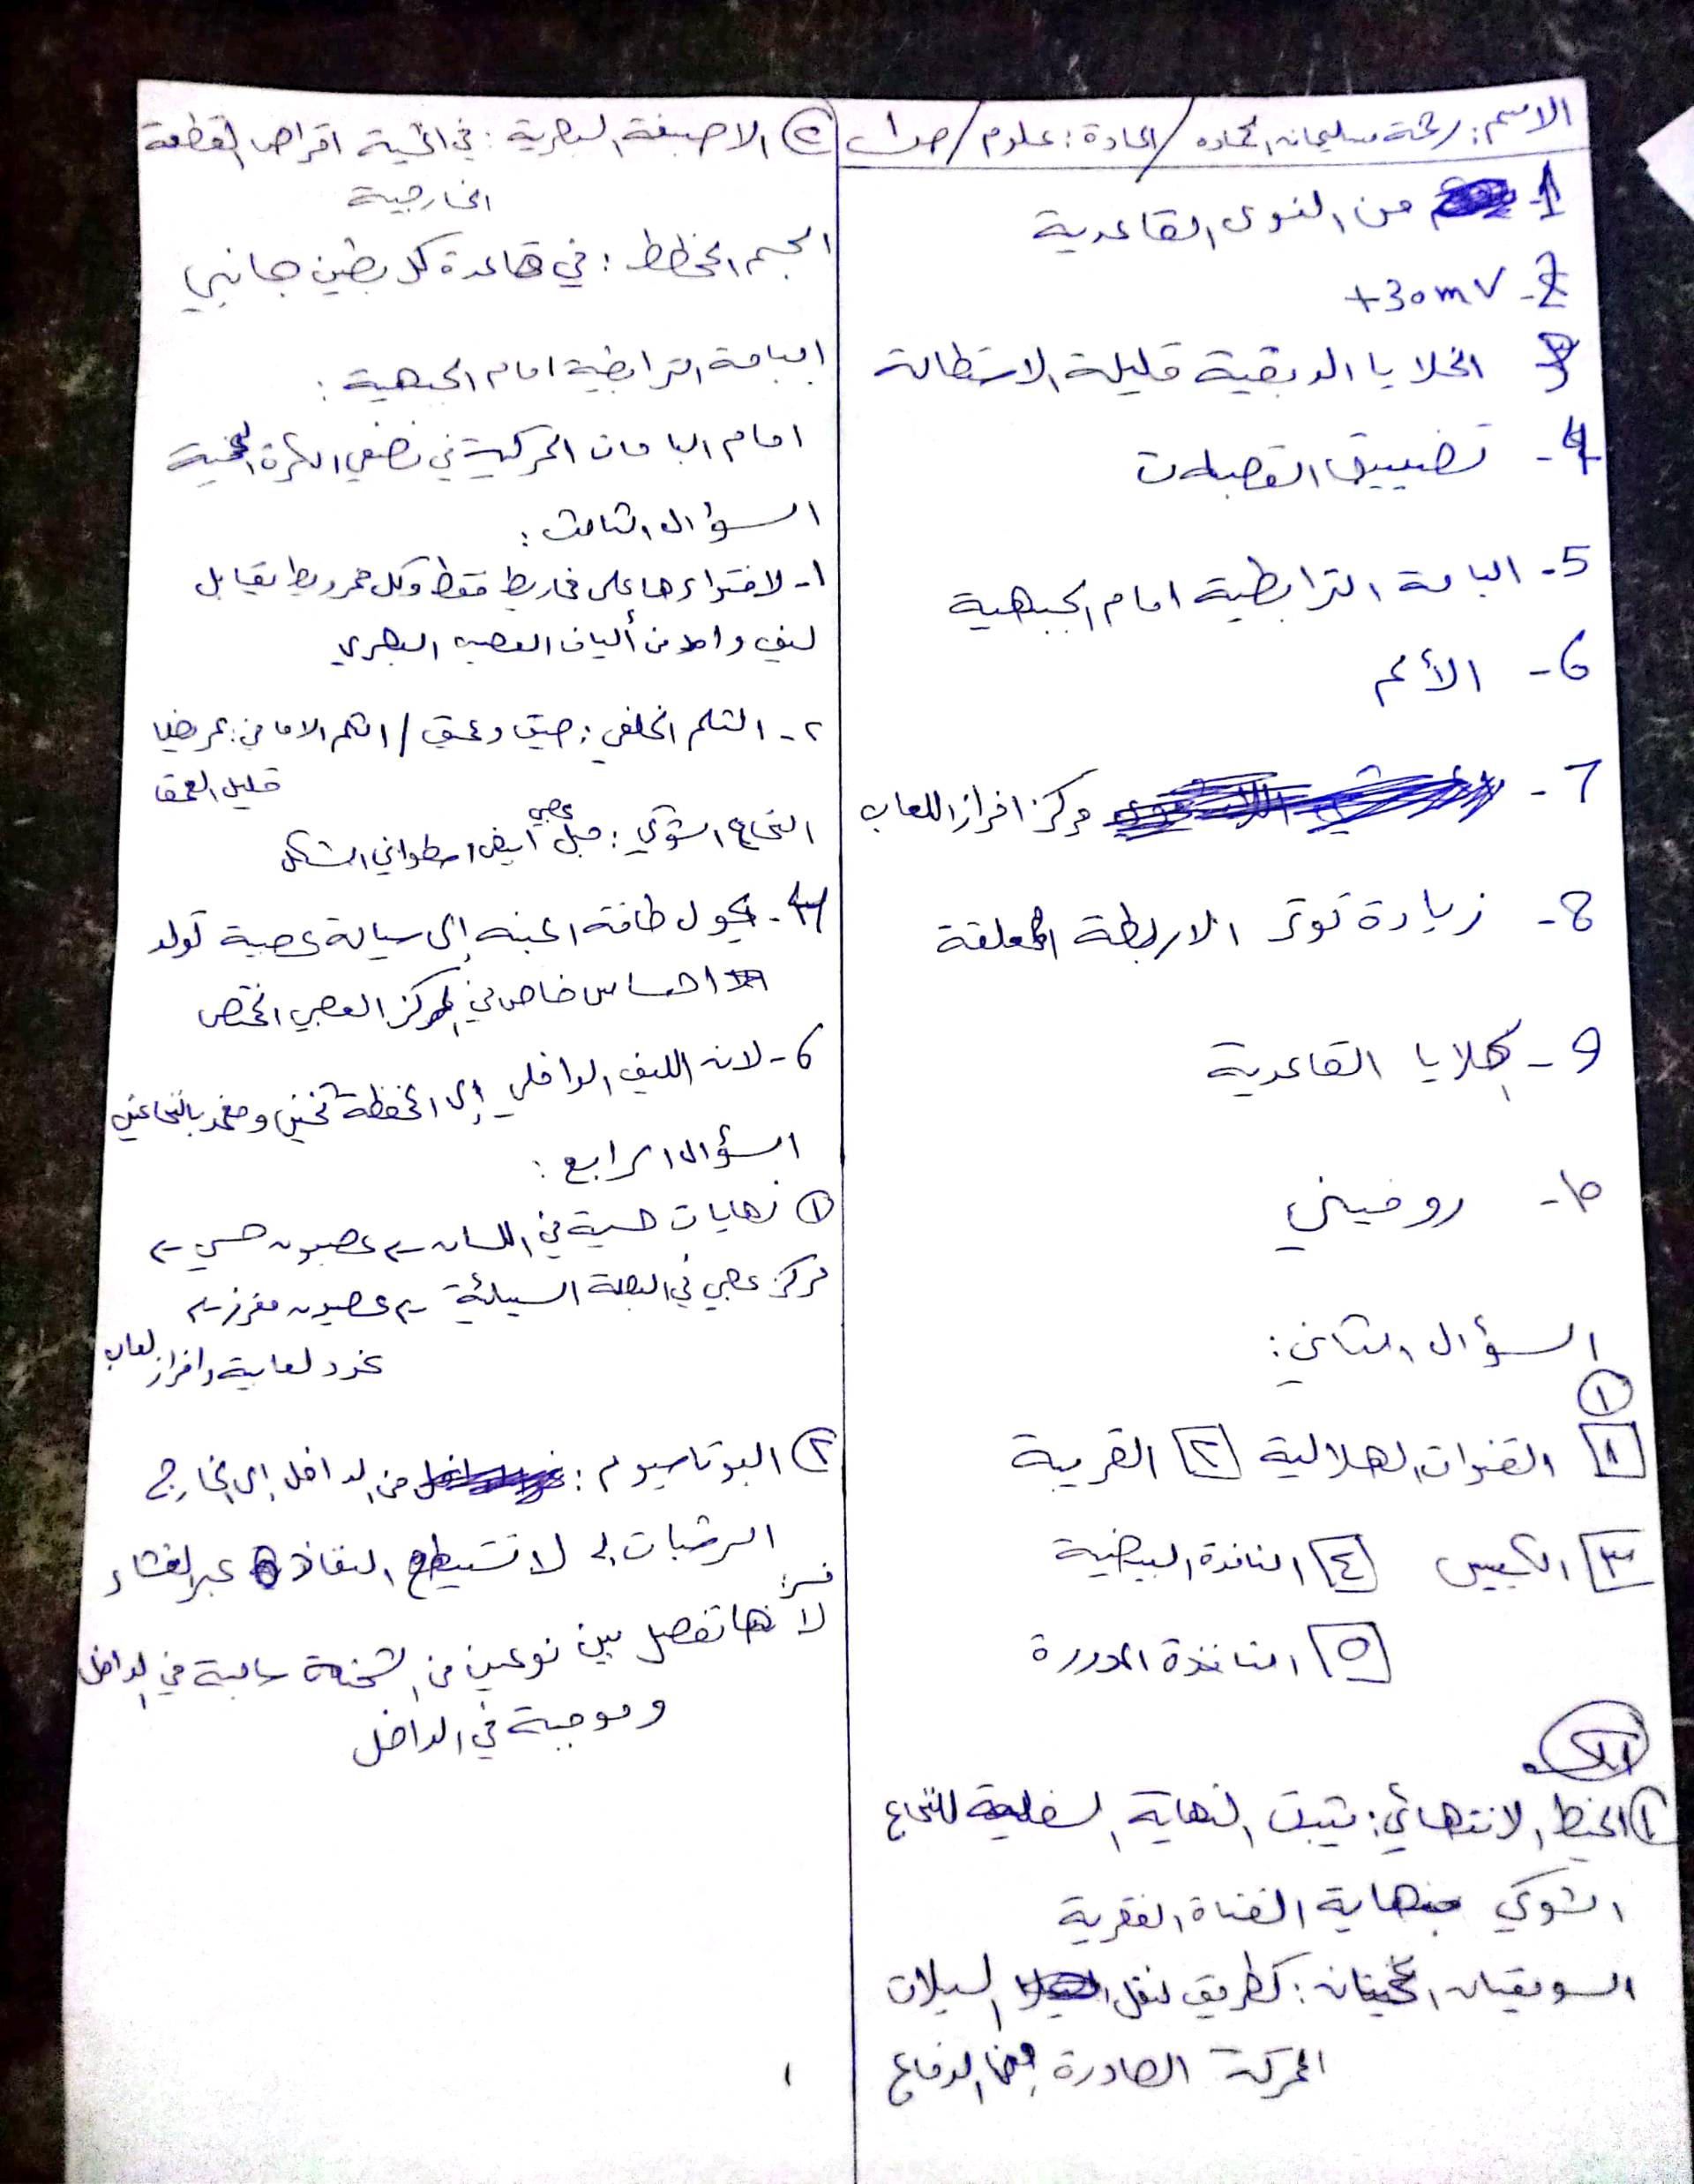 الاسم: رحمة سليمان الحماده / المادة: علوم /
1- من النوى القاعدية
2- +30mV
3 الخلايا الدبقية قليلة الاستطالة
4- تضييق القصبات
5- الباحة الترابطية امام الجبهية
6- الألم
7- مركز افراز اللعاب
8- زيادة توتر الاربطة المعلقة
9- الخلايا القاعدية
10- روفيني
السؤال الثاني:
①
١ القنوات الهلالية ٢ القريبة
٣ الكييس ٤ النافذة البيضية
٥ النافذة المدورة
② الخيط الانتهائي: يثبت النهاية السفلية للنخاع
الشوكي بنهاية القناة الفقرية
السويقتان المخيتان: كطريق لنقل السيالات
المحركة الصادرة عن الدماغ
③ الاصبغة البصرية: في اغشية اقراص القطعة
الخارجية
الجسم المخطط: في قاعدة كل بطين جانبي
الباحة الترابطية امام الجبهية:
امام الباحات الحركية في نصفي الكرة المخية
السؤال الثالث:
١- لاحتواءها على مخاريط فقط وكل مخروط يقابل
ليف واحد من ألياف العصب البصري
٢- الثلم الخلفي: ضيق وعميق / الثلم الامامي: عريض
قليل العمق
النخاع الشوكي: حبل عصبي أبيض اسطواني الشكل
4- يحول طاقة المنبه إلى سيالة عصبية تولد
احساس خاص في المركز العصبي المختص
6- لانه الليف الداخلي إلى المحفظة ثخين ومغمد بالنخاعين
السؤال الرابع:
① نهايات حسية في اللسان ← عصبون حسي ←
مركز عصبي في البصلة السيسائية ← عصبون مفرز ←
غدد لعابية وافراز لعاب
② البوتاسيوم: من الداخل إلى الخارج
الرشبات لا تستطيع النفاذ عبر الغشاء
فسر:
لأنها تفصل بين نوعين من الشحنة سالبة في الداخل
وموجبة في الداخل